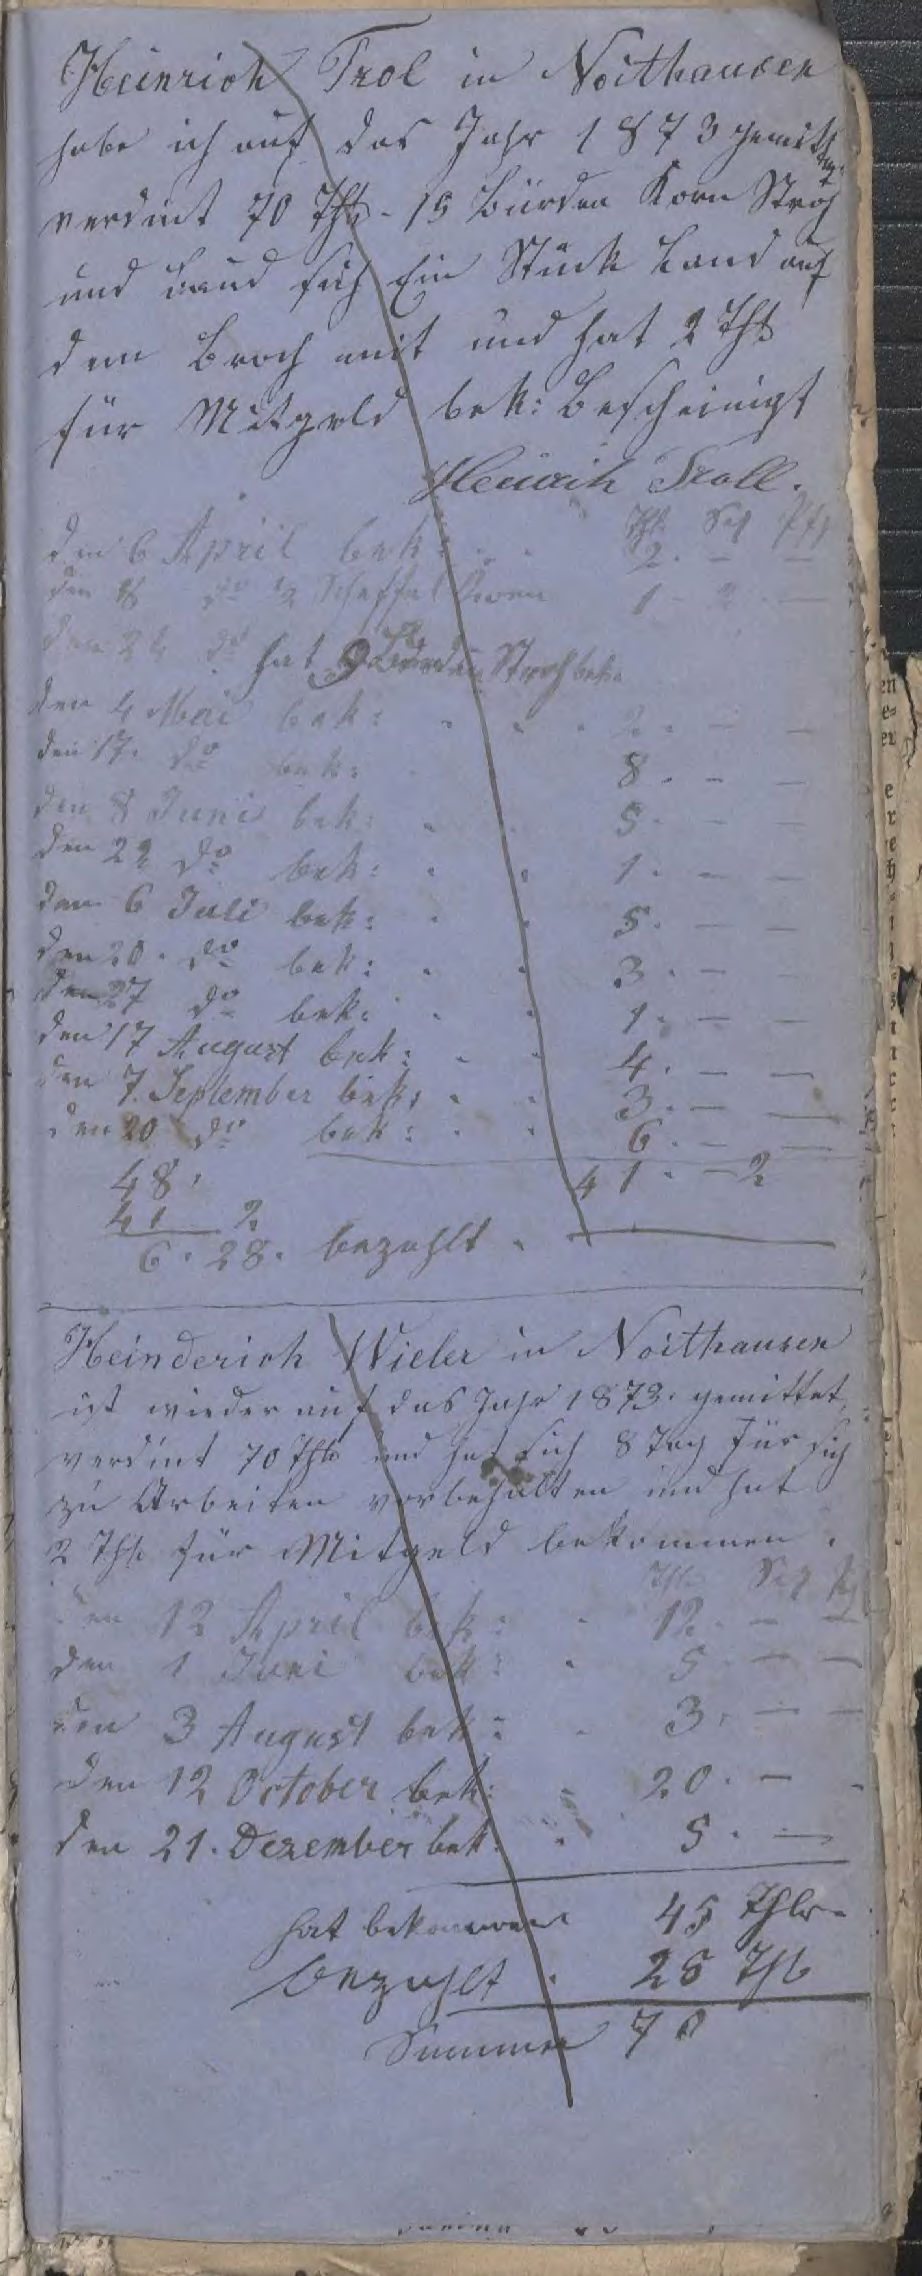 Heinrich Trol in Noithausen
habe ich auf das Jahr 1873 gemithet
verdint 70 Thl. 15 Bürden Korn Stroh
und sich Ein Stück Land auf
dem Broch mit und hat 2 Thl
für Mitgeld bek: Bescheinigt
Heinrich Troll.
Thl Sgl Pfg
den 6 April bek: . . 2. — —
den do 1/2 Scheffel Korn 1 - 2. —
den do hat 9 Bürden Stroh bek.
den 4 Mai bek: . . . 2. — —
den 17. do bek: 8. — —
den 8 Juni bek: . . 5. — —
den 22 do bek: . . 1. — —
den 6 Juli bek: . . 5. — —
den 20. do bek: . . 3. — —
den 27 do bek: . . 1. — —
den 17 August bek: . . 4. — —
den 7. September bek: . . 3. — —
den 20 do bek: . . 6. — —
48. 41. — 2
41 2
6. 28. bezahlt .
Heinderich Wieler in Noithausen
ist wieder auf das Jahr 1873. gemittet,
verdint 70 Thl und hat sich 8 Tag für sich
zu Arbeiten vorbehalten und hat
2 Thl. für Mitgeld bekommen.
Thl. Sgl Pfg
den 12 April bek: . 12. — —
den 1 Juni bek: . 5. — —
den 3 August bek: . 3. — —
den 12 October bek: . 20. — .
den 21. Dezember bek: . 5. —
hat bekommen 45 Thlr.
bezahlt . 25 Thl
Summe 70